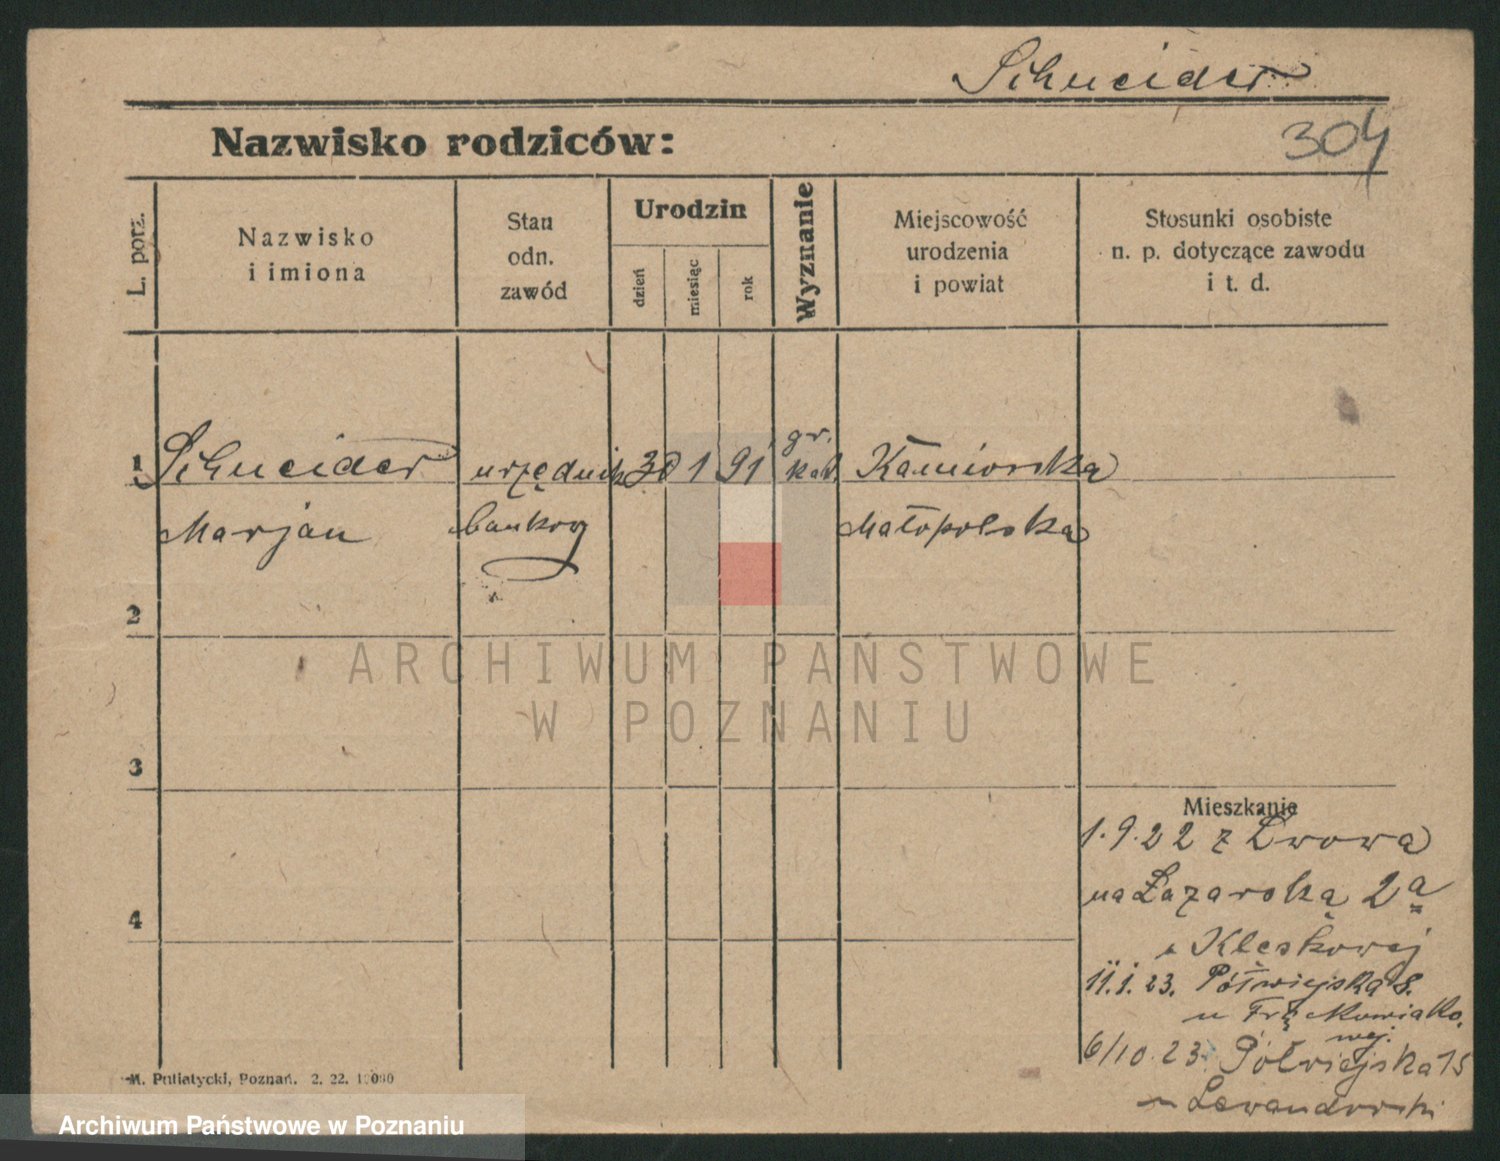 Schneider
304
Nazwisko rodziców:
L. porz.
Nazwisko
i imiona
Stan
odn.
zawód
Urodzin
dzień
miesiąc
rok
Wyznanie
Miejscowość
urodzenia
i powiat
Stosunki osobiste
n. p. dotyczące zawodu
i t. d.
1 Schneider urzędnik 30 1 91 gr. kat. Kamionka
Marjan bankowy Małopolska
2
3
4
ARCHIWUM PAŃSTWOWE
W POZNANIU
Mieszkanie
1.9.22 z Lwowa
na Łazarską 2a
u Kleskowej
11.1.23. Półwiejska 8.
u Frąckowiako.
wej.
6/10.23 Półwiejska 15
u Lewandowski
M. Putiatycki, Poznań. 2. 22.
Archiwum Państwowe w Poznaniu